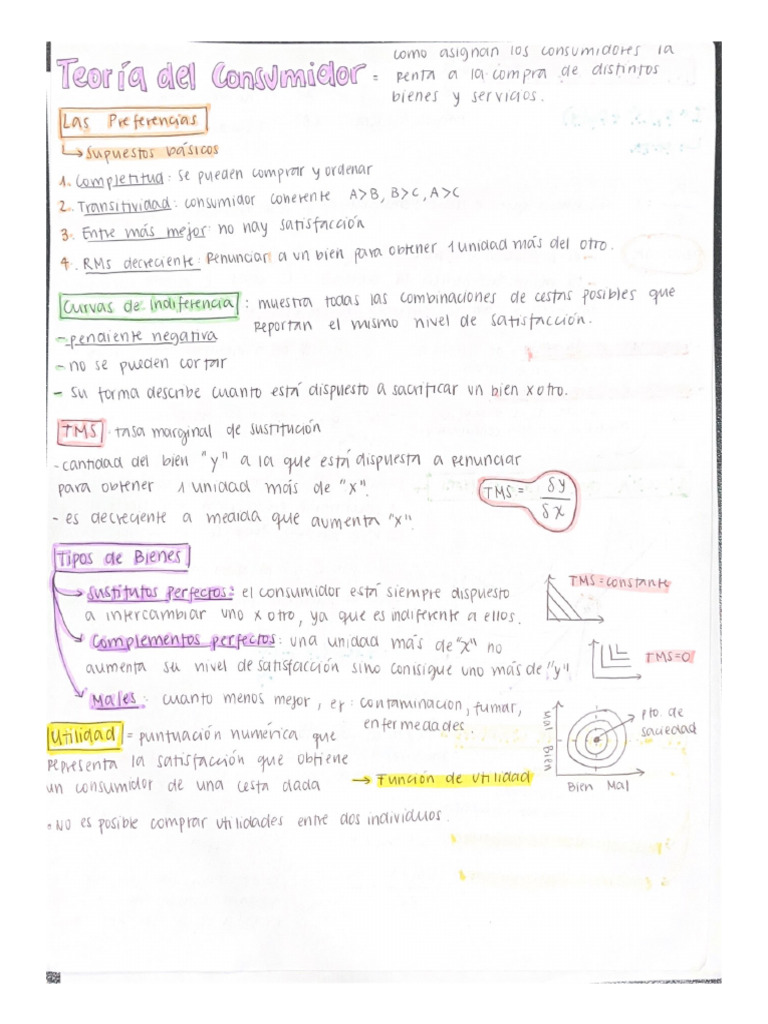 Teoría del Consumidor = como asignan los consumidores la
renta a la compra de distintos
bienes y servicios.
Las Preferencias
↳ Supuestos básicos
1. Completitud: se pueden comprar y ordenar
2. Transitividad: consumidor coherente A>B, B>C, A>C
3. Entre más mejor: no hay satisfacción
4. RMs decreciente: Renunciar a un bien para obtener 1 unidad más del otro.
Curvas de indiferencia : muestra todas las combinaciones de cestas posibles que
reportan el mismo nivel de satisfacción.
- pendiente negativa
- no se pueden cortar
- Su forma describe cuanto está dispuesto a sacrificar un bien x otro.
TMS · tasa marginal de sustitución
- cantidad del bien "y" a la que está dispuesta a renunciar
para obtener 1 unidad más de "x".
TMS = δy / δx
- es decreciente a medida que aumenta "x".
Tipos de Bienes
→ Sustitutos perfectos: el consumidor está siempre dispuesto
a intercambiar uno x otro, ya que es indiferente a ellos.
TMS = constante
→ Complementos perfectos: una unidad más de "x" no
aumenta su nivel de satisfacción sino conisigue uno más de "y"
TMS=0
→ Males: cuanto menos mejor, ej: contaminacion, fumar,
enfermedades
Utilidad = puntuación numérica que
representa la satisfacción que obtiene
un consumidor de una cesta dada → Función de utilidad
Pto. de
saciedad
Mal
Bien
Bien Mal
• No es posible comprar utilidades entre dos individuos.